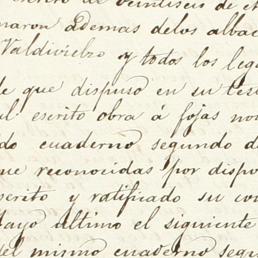 de veintiseis de e
naron ademas delos albac
Valdivielzo y todos los lega
de que dispuso en su tes
al escrito obra á fojas no
do cuaderno segundo d
ue reconocidas por dispo
scrito y ratificado su co
ayo ultimo el siguiente
del mismo cuaderno segu